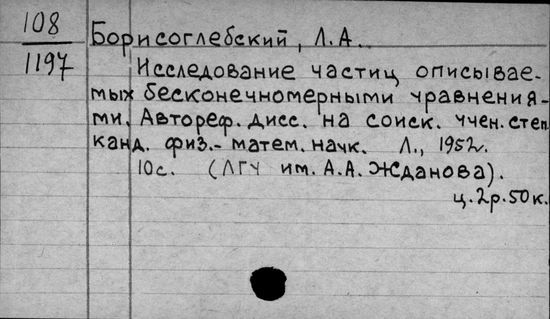 108
1197
Борисоглебский, Л.А.
Исследование частиц описывае-
мых бесконечномерными уравнения-
ми. Автореф. дисс. на соиск. учен. степ.
канд. физ.-матем. наук. Л., 1952.
10с. (ЛГУ им. А.А. Жданова).
ц. 2р. 50к.